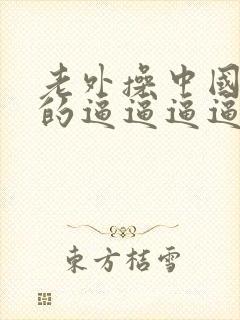 老外操中國
的逼逼逼逼
東方桔雪